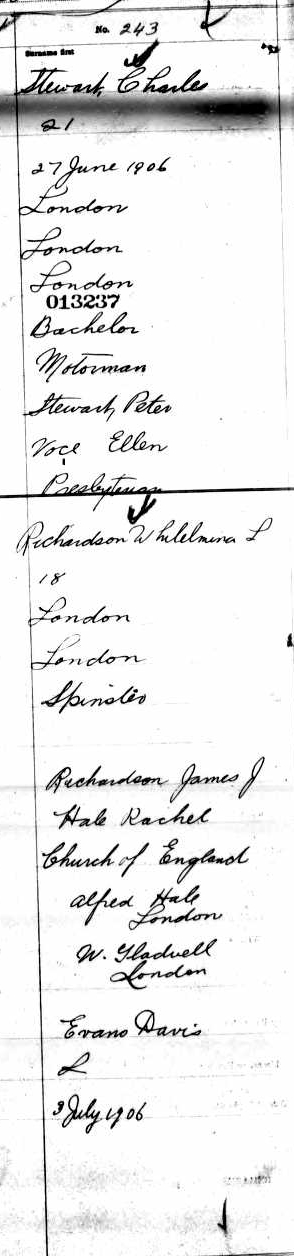 No. 243
Surname first
Stewart, Charles
21
27 June 1906
London
London
London
013237
Bachelor
Motorman
Stewart, Peter
Voce Ellen
Presbyterian
Richardson Whilelmina L
18
London
London
Spinster
Richardson James J
Hale Rachel
Church of England
Alfred Hale
London
W. Gladwell
London
Evans Davis
L
3 July 1906